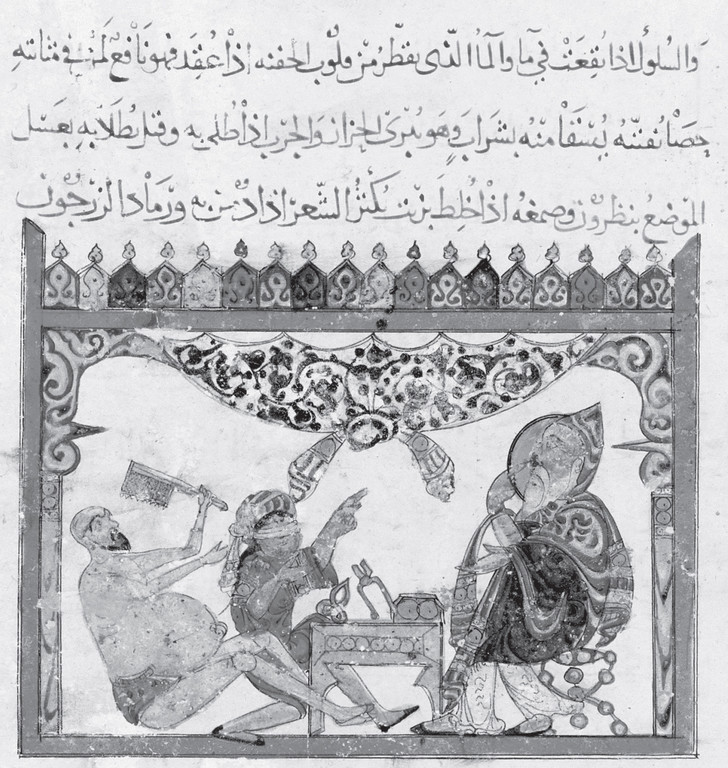 والسلول اذا نقعت في ما والما الذى يقطر من قلوب الجفنه اذا عقد فهو نافع لمن في مثانته
حصا تفتته يستقا منه بشراب وهو يبرى الحزاز والجرب اذا طلى به وقبل يطلا به يغسل
الموضع بنظرون وصمغه اذا خلط بزيت يكثر الشعر اذا دهن به ورماد الزرجون